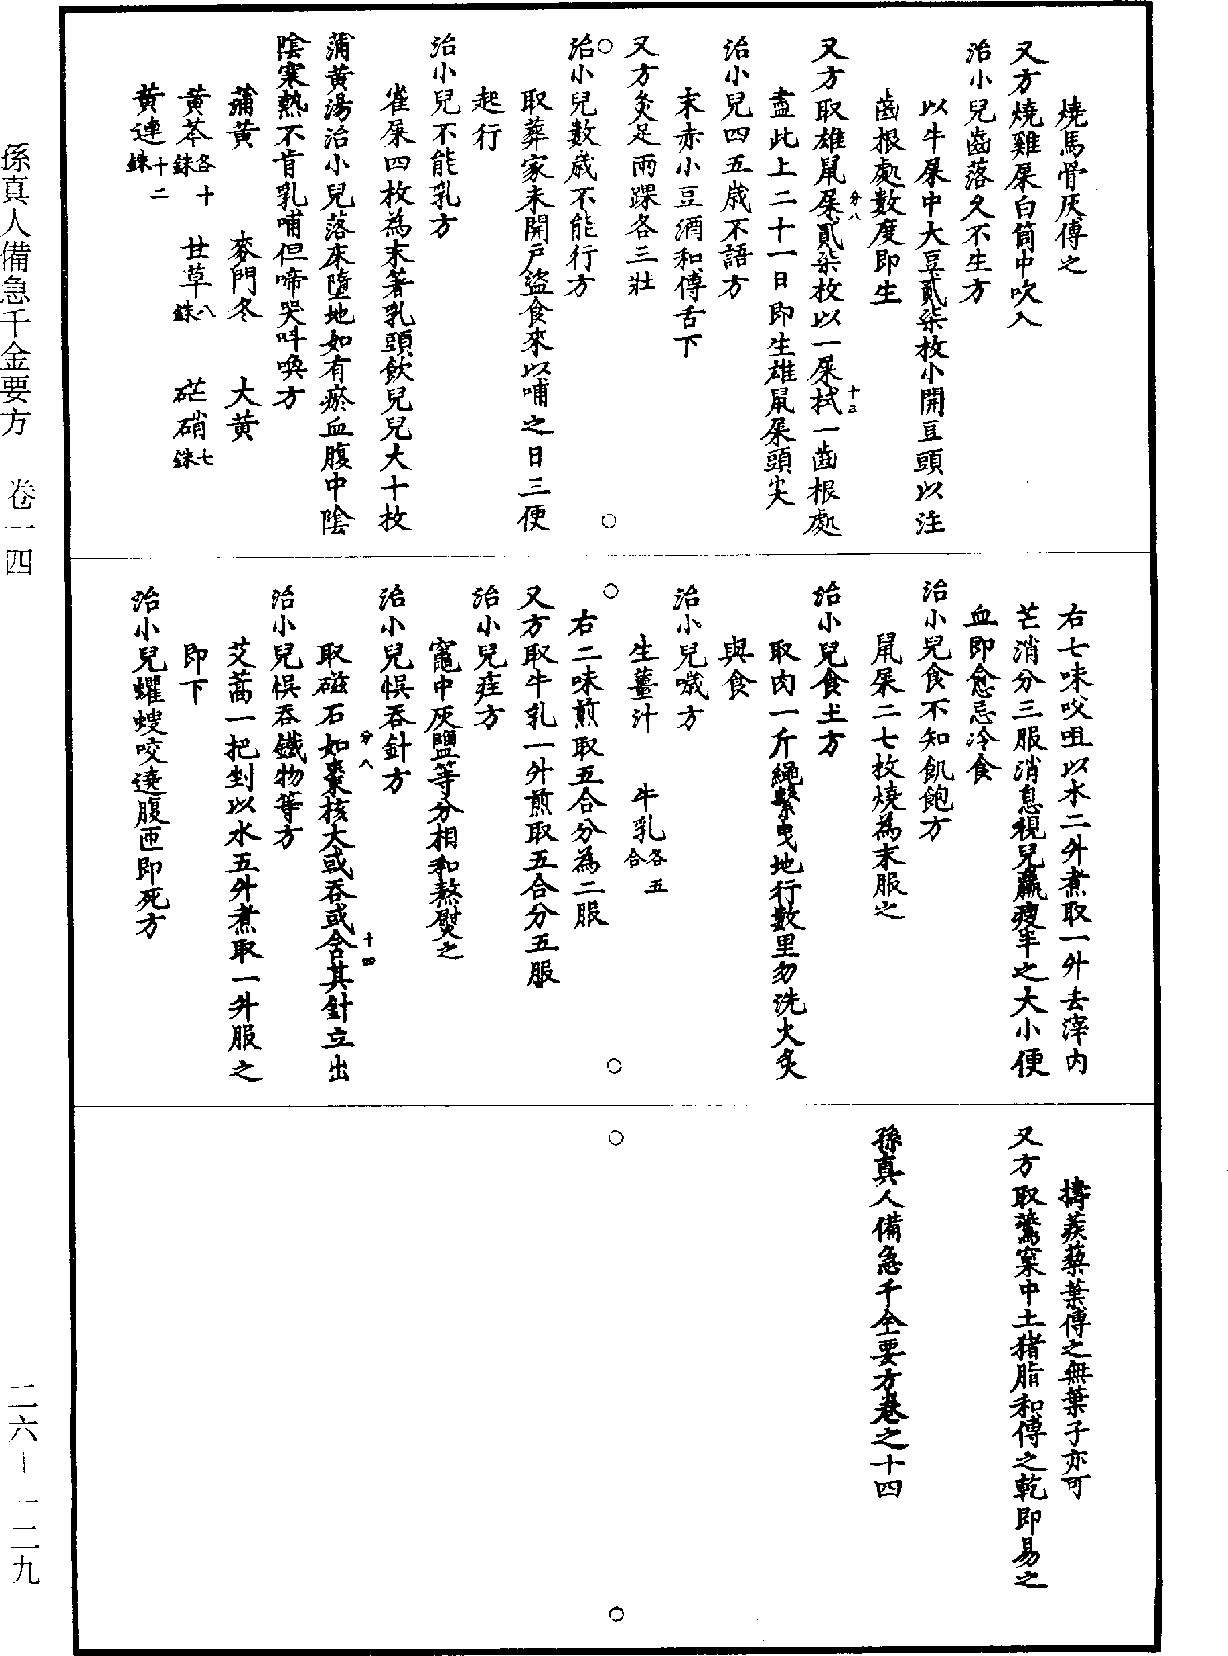 燒馬骨灰傅之
又方燒雞屎白筒中吹入
治小兒齒落久不生方
以牛屎中大豆貳柒枚小開豆頭以注
齒根處數度即生
又方取雄鼠屎貳柒枚以一屎拭一齒根處
分八
十三
盡此上二十一日即生雄鼠屎頭尖
治小兒四五歲不語方
末赤小豆酒和傅舌下
又方灸足兩踝各三壯
治小兒數歲不能行方
取葬家未開戶盜食來以哺之日三便
起行
治小兒不能乳方
雀屎四枚為末著乳頭飲兒兒大十枚
蒲黃湯治小兒落床墮地如有瘀血腹中陰
陰寒熱不肯乳哺但啼哭叫喚方
蒲黃 麥門冬 大黃
黃芩各十銖 甘草八銖 芒硝七銖
黃連十二銖
右七味㕮咀以水二升煮取一升去滓內
芒消分三服消息視兒羸瘦半之大小便
血即愈忌冷食
治小兒食不知飢飽方
鼠屎二七枚燒為末服之
治小兒食土方
取肉一斤繩繫曳地行數里勿洗火炙
與食
治小兒噦方
生薑汁 牛乳各五合
右二味煎取五合分為二服
又方取牛乳一升煎取五合分五服
治小兒疰方
竈中灰鹽等分相和熬熨之
治小兒悞吞針方
分八
十四
取磁石如棗核大或吞或含其針立出
治小兒悞吞鐵物等方
艾蒿一把剉以水五升煮取一升服之
即下
治小兒蠼螋咬遶腹匝即死方
擣蒺藜葉傅之無葉子亦可
又方取鷰窠中土豬脂和傅之乾即易之
孫真人備急千金要方卷之十四
孫真人備急千金要方 卷一四
二六－一二九